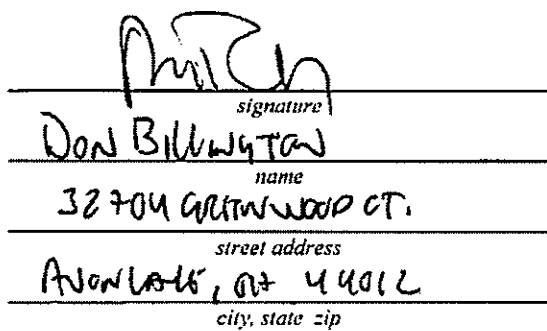 signature
DON BILLINGTON
name
32704 GREENWOOD CT.
street address
AVON LAKE, OH 44012
city, state zip